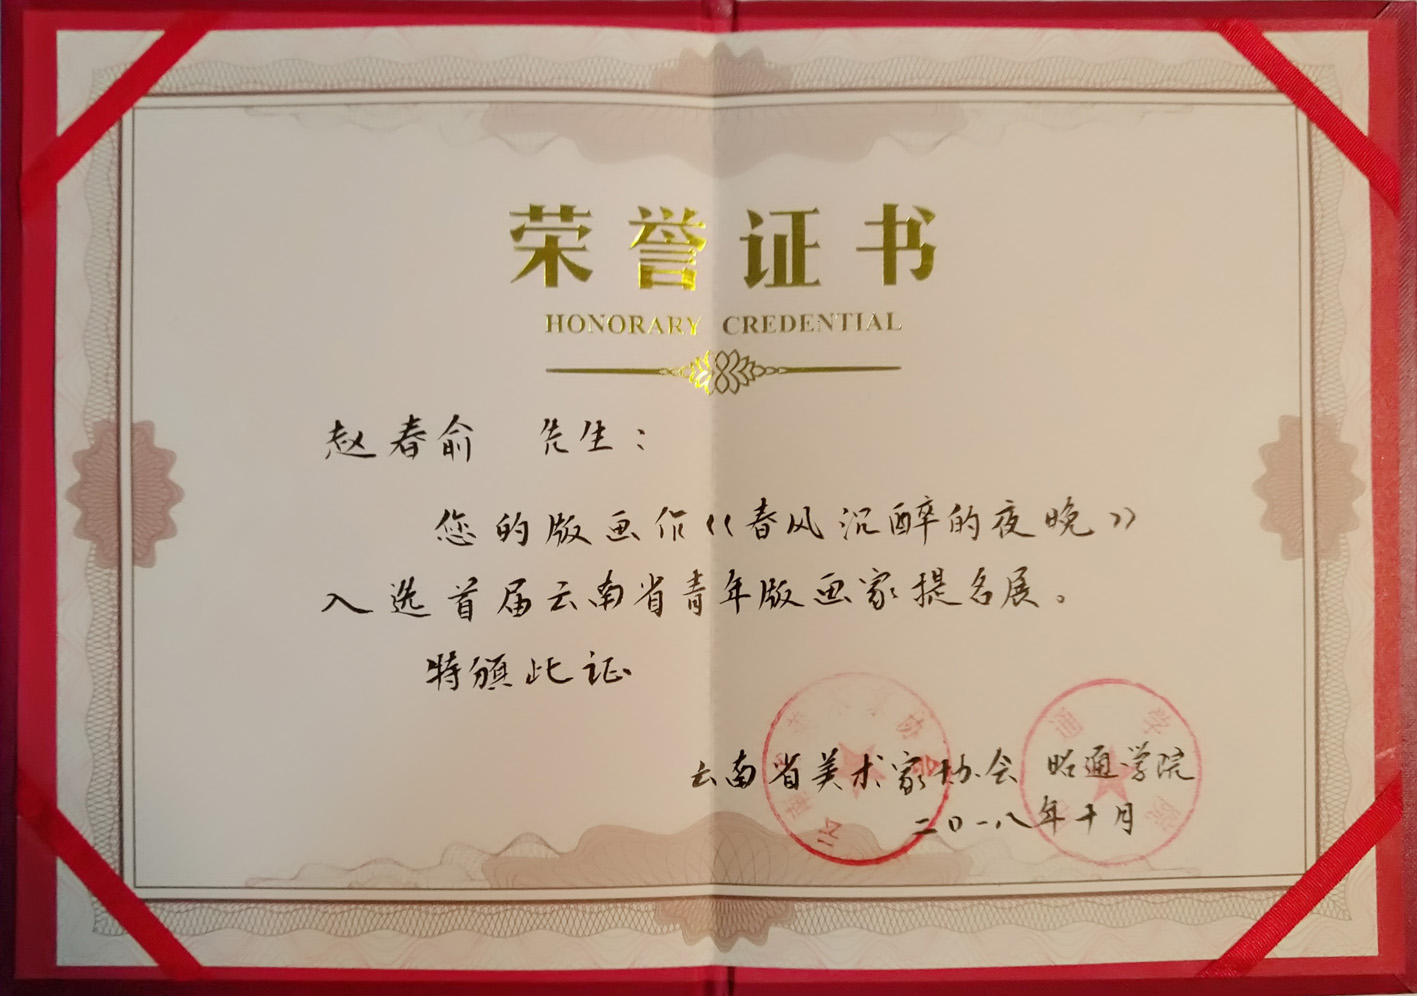 荣誉证书
HONORARY CREDENTIAL
赵春俞 先生：
您的版画作《春风沉醉的夜晚》
入选首届云南省青年版画家提名展。
特颁此证
云南省美术家协会 昭通学院
二〇一八年十月